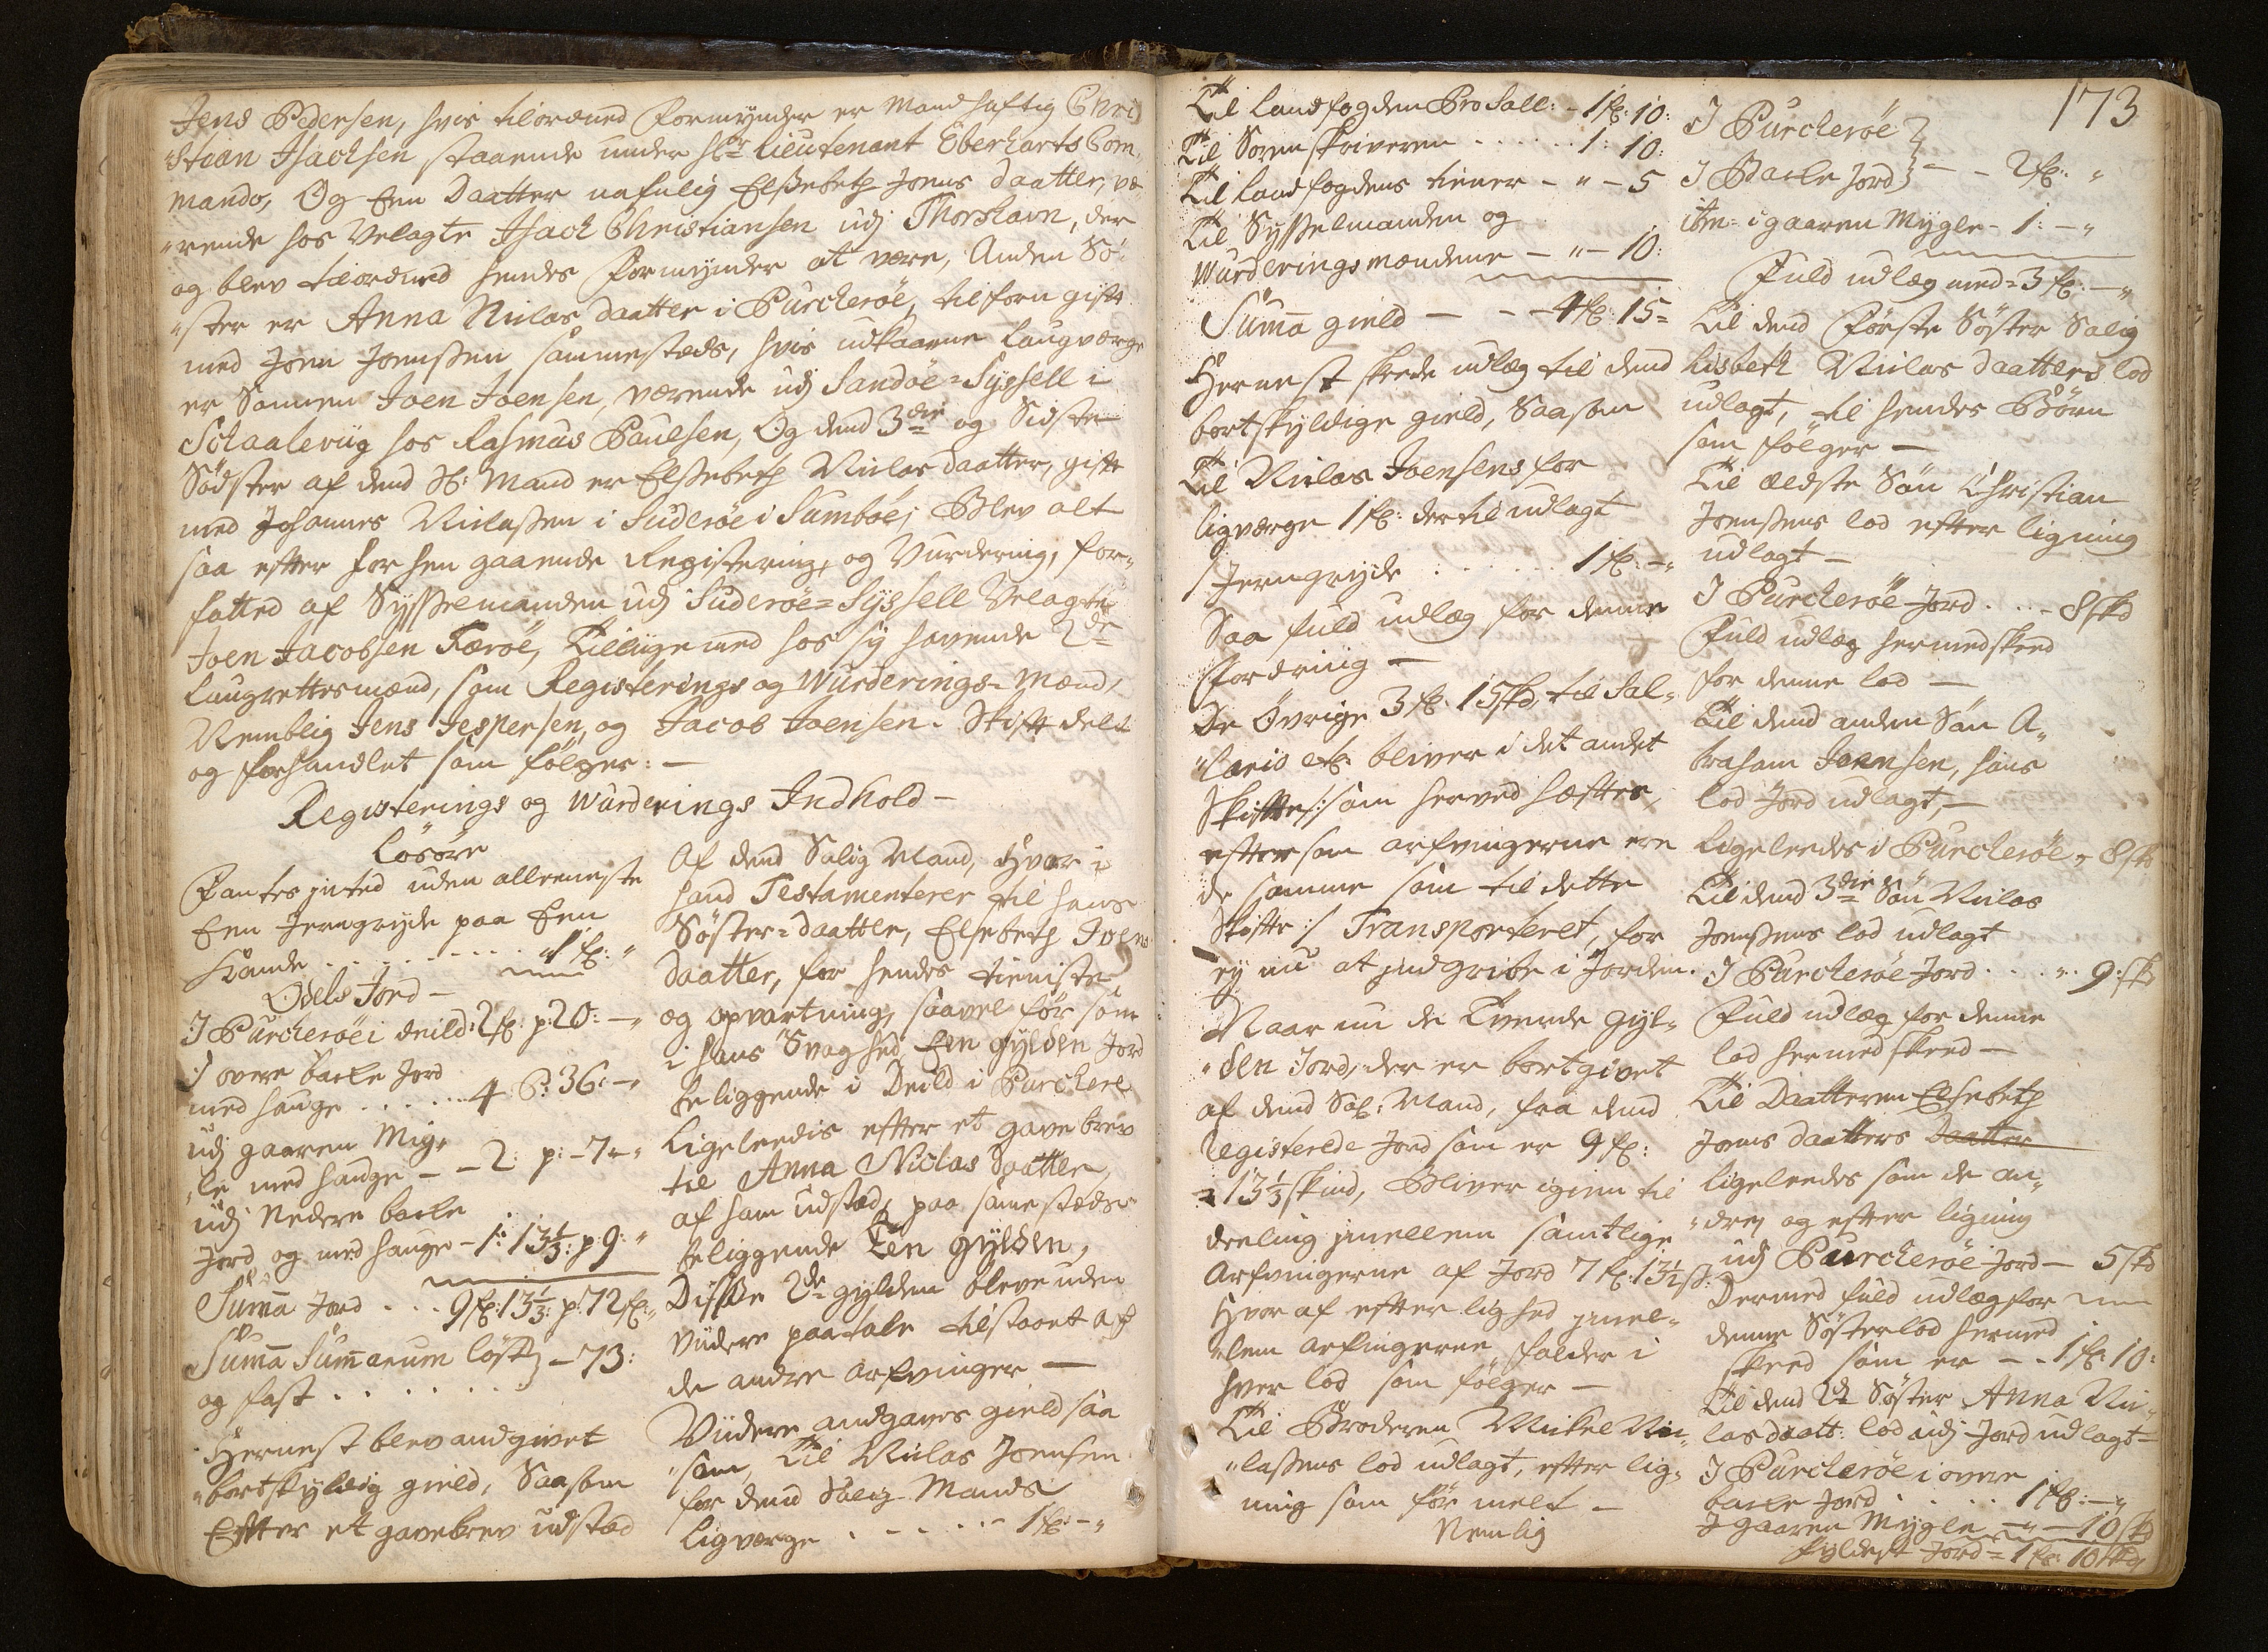 Jens Pedersen, hvis tilordned Formynder er Mandhaftig Chri
stian Jsachsen staaende under Hr Lieutenant Eberharts Com„
mando, Og Een Daatter nafnlig Elssebeth Joens daatter, væ„
„rende hos Velagte Jsach Christiansen udj Thorshavn, der
og blev tilordned hendes Formynder at være, Anden Sö„
„ster er Anna Niclas daatter i Purcheröe, tilforn gift
med Joen Joenssen sammesteds, hvis udkaarne Laugværge
er Sönnen Joen Joensen, værende udj Sandöe=Syssell i
Schaaleviig hos Rasmus Paulsen, Og dend 3die og Sidste
Södster af dend Sl: Mand er Elssebeth Niclas daatter, gift
med Johannes Niclassen i Suderöe i Sumböe; Blev alt
saa efter forhen gaaende Registering, og Vurdering, for„
fatted af Sysselmanden udj Suderöe=Syssell Velagte
Joen Jacobsen Færöe, Tilligemed hos sig havende 2de
Laugrettesmænd, som Registerings og Wurderings=Mænd,
Nemblig Jens Jespersen, og Jacob Joensen. Skift deelt
og forhandlet som fölger: —
Registerings og Wurderings Indhold —
Lösöre
Fantes inted uden alleeniste
Een Jerngryde paa Een
Kande . . . . . . . . . 1 fl: „
Odels Jord —
I Purcheröe i deild: 2 fl: p: 20: — „
I overe bache Jord
med hauge . . . . . . 4 P: 36: — „
udj gaaren Myg„
„le med hauge — — 2: p: — 7 — „
udj Nedere bache
Jord og med hauge — 1: 13 1/3: p: 9: „
Suma Jord . . . 9 fl: 13 1/3: p: 72 fl: „
Suma Sumarum löst
og fast . . . . . . } — 73:
Hernest blev andgivet
„bortskyldig gield, Saasom
Efter et gavebrev udstæd
Af dend Salig Mand, Hvor i
hand Testamenterer til hans
Söster=daatter, Elsebeth Joens
daatter, for hendes tieniste
og opvartning, saavel för som
i hans Svaghed, Een gylden Jord
beliggende i Deild i Purchere
Ligeleedis efter et gave brev
til Anna Niclas daatter,
af ham udstæd, paa samestædz
beliggende Een gylden,
Disse 2de gylden bleve uden
Viidere paatale tilstaaet af
de andre Arfvinger —
Viidere andgaves gield saa
„som, Til Niclas Joensen
for dend Salig Mands
Ligværge . . . . . . 1 fl: — „
Til Landfogden Pro Sall: — 1 fl: 10:
Til Sorenskriveren . . . . . . 1: 10:
Til Landfogdens tiener — „ — 5
Til Sysselmanden og
Wurderingsmændene — „ — 10:
Suma gield — — — 4 fl: 15=
Hernest skede udlæg til dend
bortskyldige gield, Saasom
Til Niclas Joensens for
ligværge 1 fl: der til udlagt
1 Jerngryde . . . . . . 1 fl: — „
Saa fuld udlæg for denne
Fordring —
De Övrige 3 fl: 15 skd, til Sal„
„lario etc bliver i det andet
Skifte /: som herved hæftes,
eftersom arfvingerne ere
de samme som til dette
Skifte :/ Transporteret, for
ey nu at indgribe i Jorden.
Naar nu de Tvende gyl„
„den Jord, der er bortgivet
af dend Sal: Mand, fra dend
Registerede Jord som er 9 fl:
13 1/3 skind, Bliver igien til
deeling imellem samtlige
Arfvingerne af Jord 7 fl: 13 1/2 sk:
Hvor af efter lighed imel„
„lem Arfingerne falder i
hver lod som fölger —
Til Broderen Mikel Nic„
„lassens lod udlagt, efter lig„
ning som för melt —
Nemlig
173
I Purcheröe }
I Bache Jord } — — 2 fl: „
itm= i gaaren Mygle — 1: — „
Fuld udlæg med = 3 fl: — „
Til dend Förste Söster Salig
Lisbeth Niclas daatters lod
udlagt, til hendes Börn
som fölger —
Til ældste Sön Christian
Joenssens lod efter ligning
udlagt —
I Purcheröe Jord . . . — 8 skd
Fuld udlæg hermed skeed
for denne lod —
Til dend anden Sön A„
braham Joensen, hans
lod Jord udlagt, —
Ligeleedes i Purcheröe — 8 sk
Til dend 3die Sön Niclas
Joenssens lod udlagt
I Purcheröe Jord . . . „ 9: sk
Fuld udlæg for denne
lod hermed skeed —
Til Daatteren Elsebeth
Joens daatters Daatter
ligeleedes som de an„
„dre, og efter ligning
udj Purcheröe Jord — 5 skd
Dermed fuld udlæg for
denne Sösterlod hermed
skeed som er — — 1 fl: 10:
Til dend 2de Söster Anna Nic„
las daatt: lod udj Jord udlagt—
I Purcheröe i overe
bache Jord . . . . . 1 fl: — „
I gaaren Mygle — „ — 10 sk
fyldest Jord = 1 fl: 10 skd